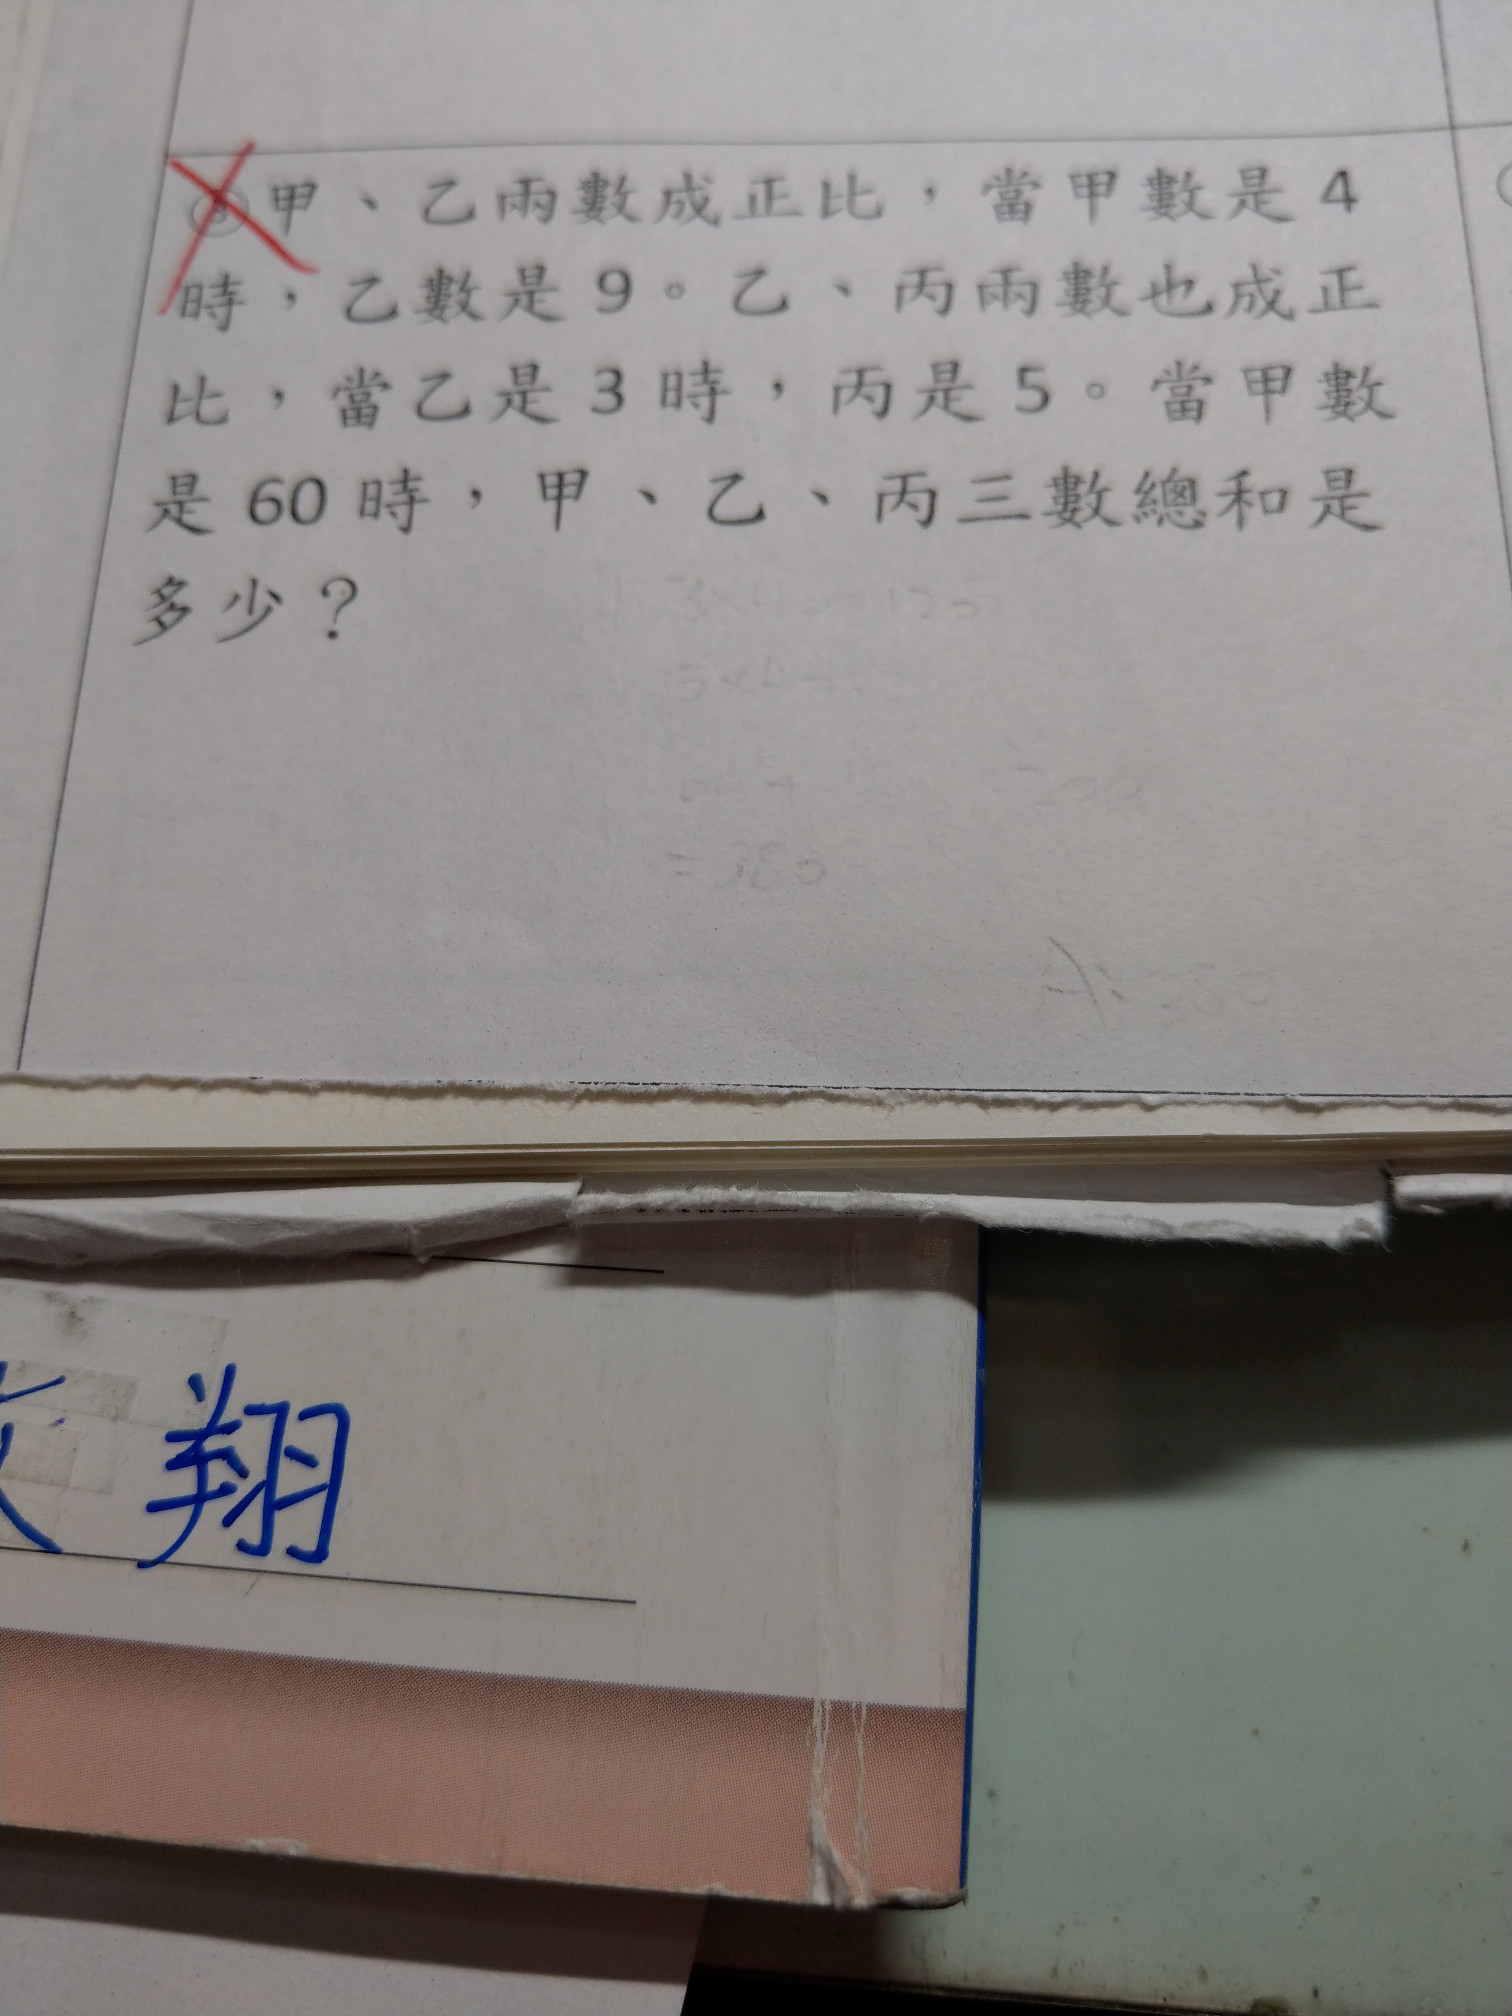 甲、乙兩數成正比，當甲數是 4
時，乙數是 9。乙、丙兩數也成正
比，當乙是 3 時，丙是 5。當甲數
是 60 時，甲、乙、丙三數總和是
多少？
翔